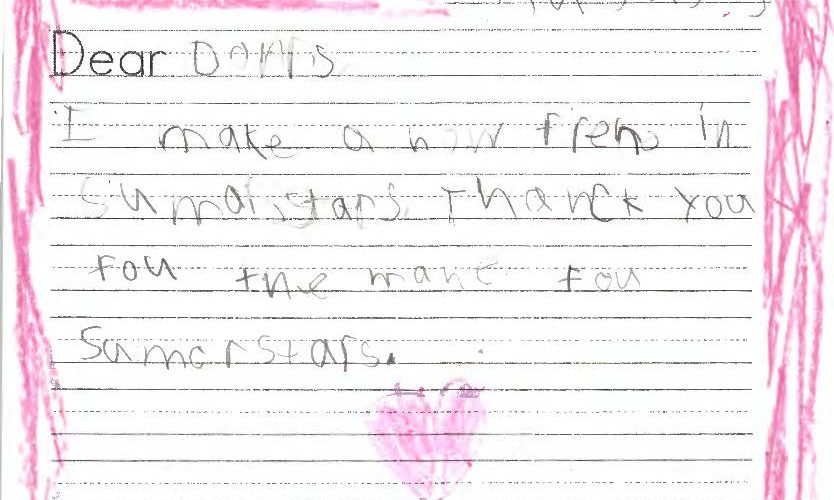 Dear Donors
I make a now frend in
sumarstars. Thanck you
fou the mane fou
Samorstars.